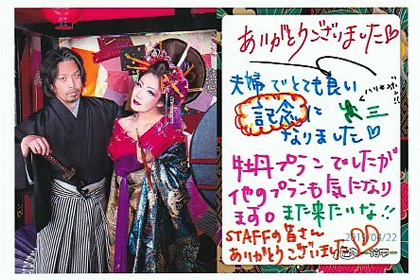 ありがとうございました♡
夫婦でとても良い
記念に
なりました♡
牡丹プランでしたが
他のプランも気になり
ます。また来たいな!!
STAFFの皆さん
ありがとうございました♡♡